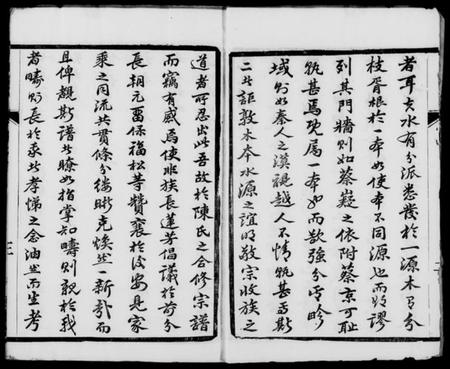 者耳夫水有分派悉発於一源木有分
枝胥根於一本如使本不同源也而故謬
列其門牆則如蔡嶷之依附蔡京可耻
孰甚焉既属一本如而欲強分畛
域則如秦人之漠視越人不情孰甚焉斯
二者詎敦木本水源之誼明敬宗收族之
道者所忍出此吾故於陳氏之合修宗譜
而竊有感焉使非族長蓮芳倡議於前分
長朝元冨保福松等賛襄於後安見家
乘之同流共貫條分縷晰克煥然一新哉而
且俾覩斯譜者瞭如指掌知疇則親於我
者疇則長於我者孝悌之念油然而生考
三